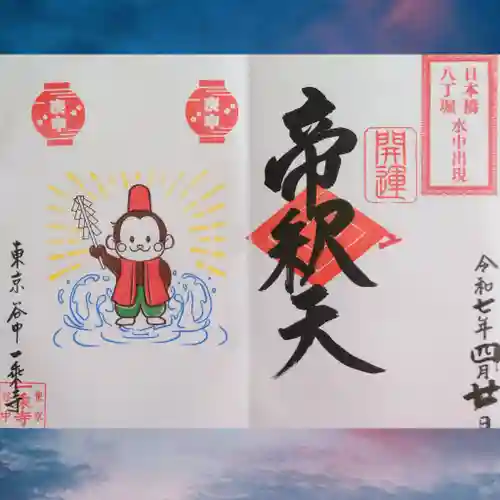 日本橋
八丁堀
水中出現
開運
帝釈天
令和七年四月廿日
庚申
庚申
東京 谷中 一乘寺